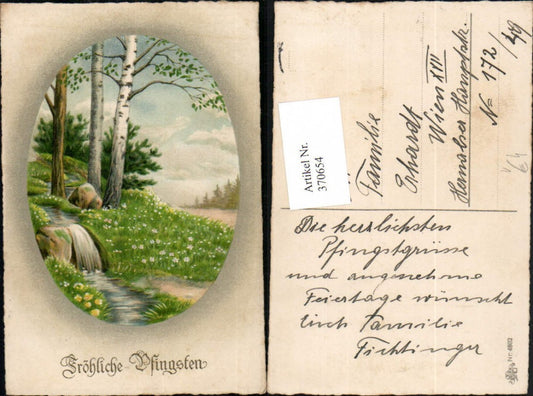 Fröhliche Pfingsten
Artikel Nr.
370654
Familie
Erhardt
Wien XVII
Hernalser Hauptstr.
No 172/
Die herzlichsten
Pfingstgrüsse
und angenehme
Feiertage wünscht
Euch Familie
Fichtinger
Nr. 4802